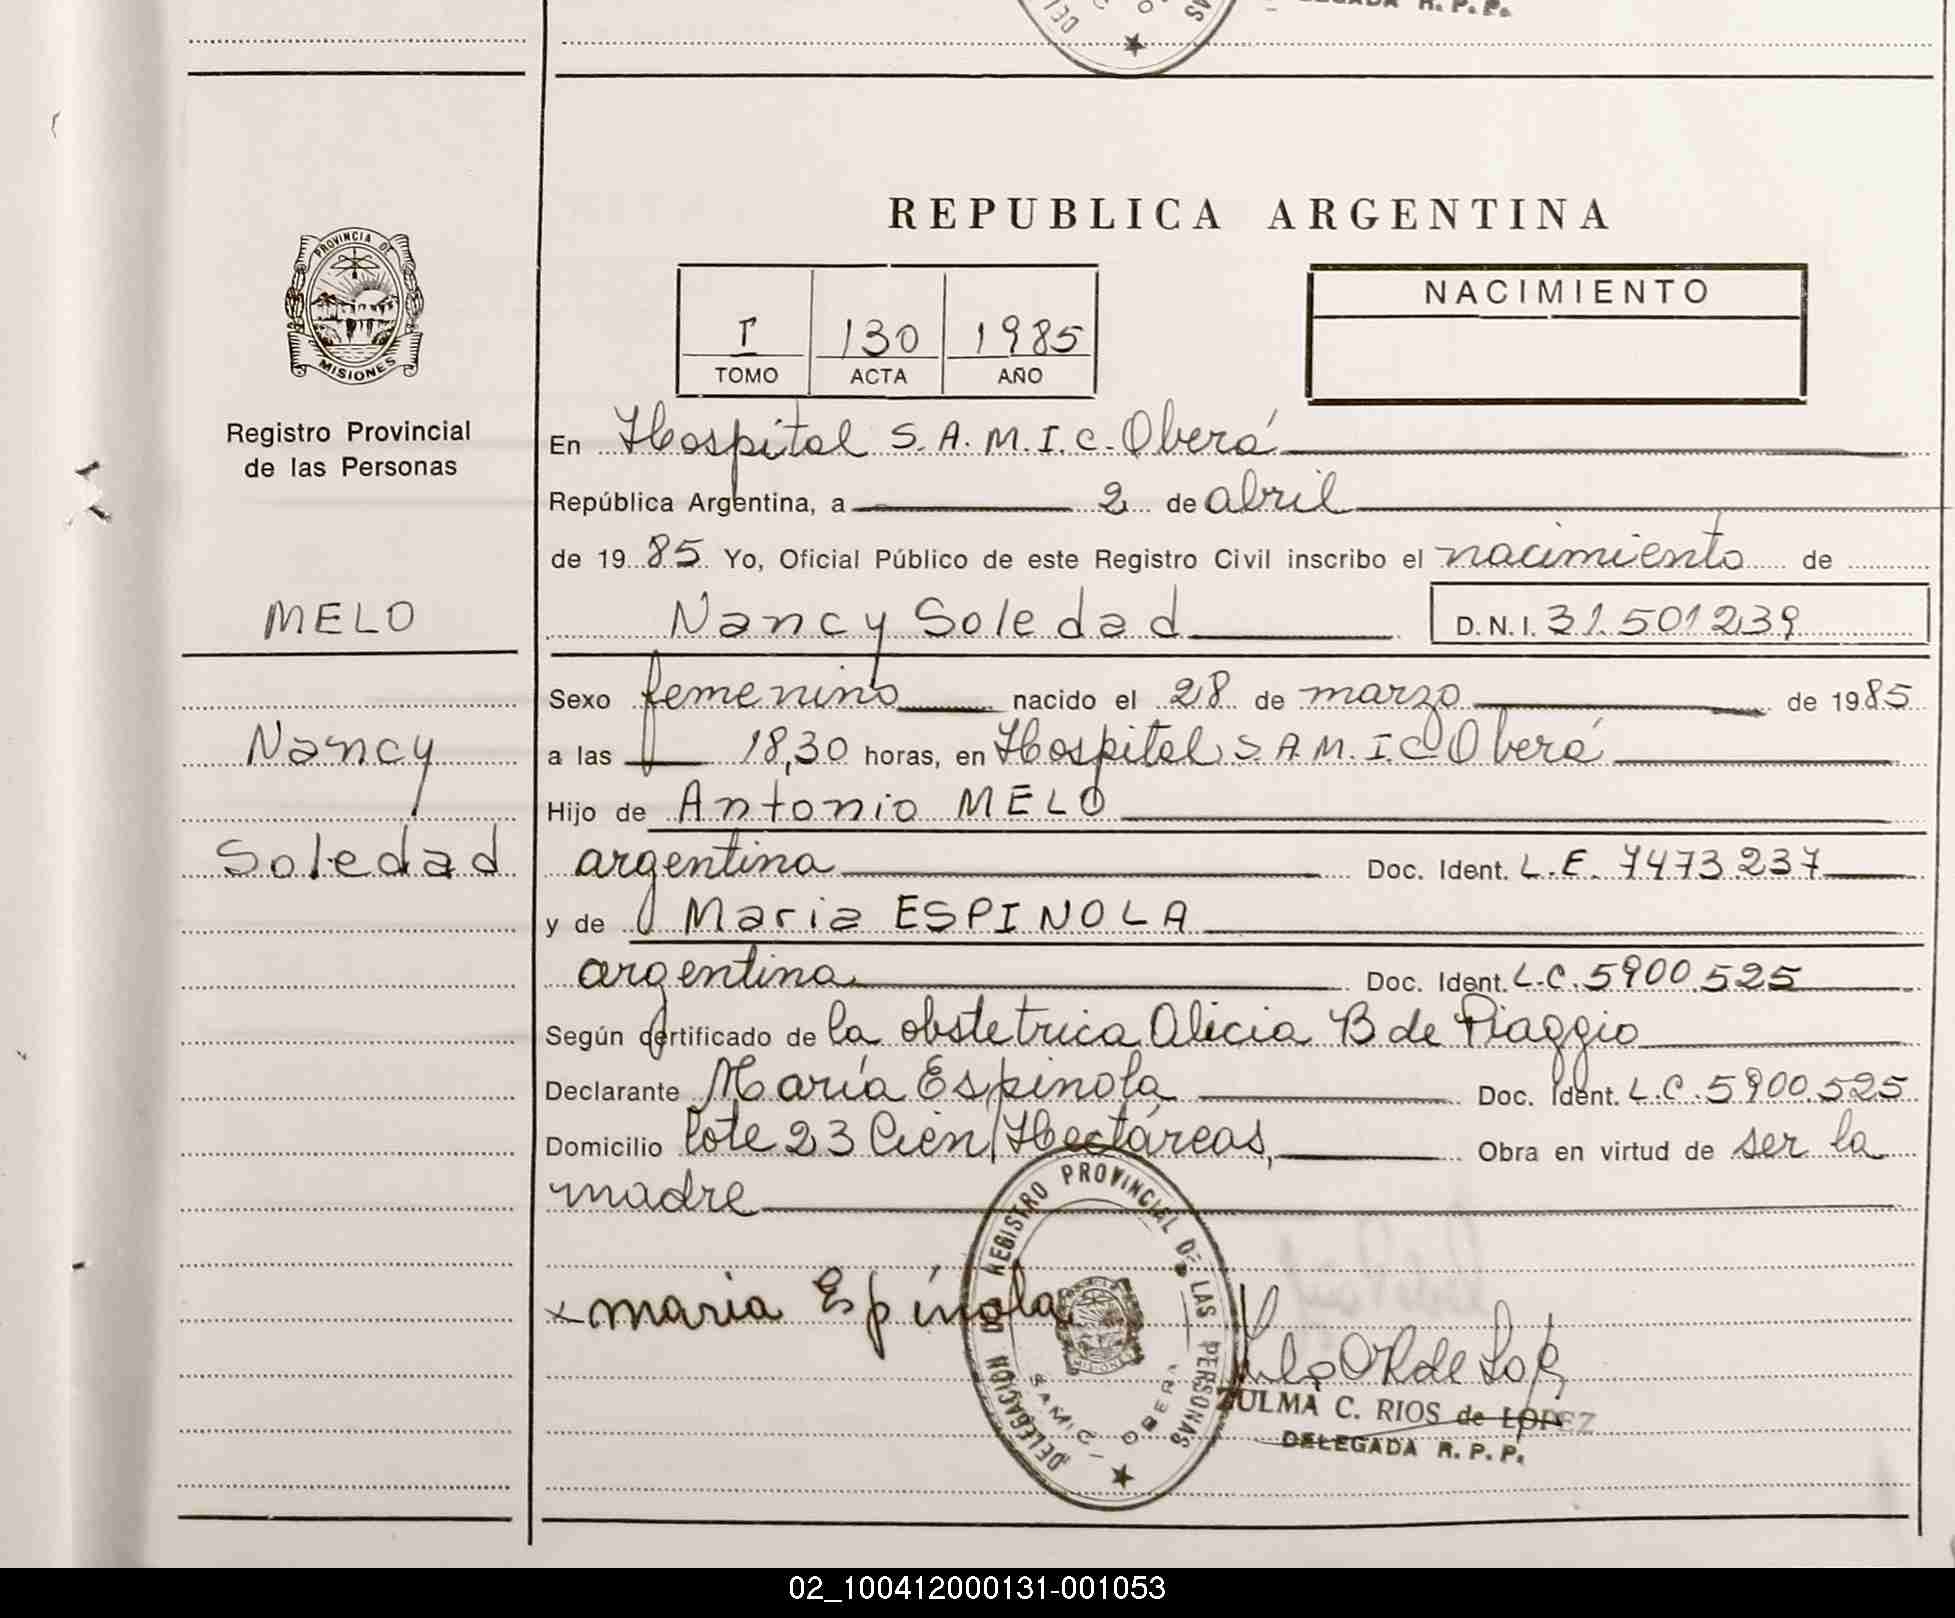 DELEGADA R. P. P.
REPUBLICA ARGENTINA
PROVINCIA DE
MISIONES
Registro Provincial
de las Personas
I 130 1985
TOMO ACTA AÑO
NACIMIENTO
En Hospital S.A.M.I.C. Oberá
República Argentina, a 2 de abril
de 19 85 Yo, Oficial Público de este Registro Civil inscribo el nacimiento de
MELO
Nancy Soledad D.N.I. 31.501239
Sexo femenino nacido el 28 de marzo de 1985
Nancy
a las 18,30 horas, en Hospital S.A.M.I.C Oberá
Hijo de Antonio MELO
Soledad
argentina Doc. Ident. L.E. 7473237
y de Maria ESPINOLA
argentina Doc. Ident. L.C. 5900.525
Según certificado de la obstetrica Alicia B de Piaggio
Declarante María Espinola Doc. Ident. L.C. 5900.525
Domicilio lote 23 Cien Hectáreas, Obra en virtud de ser la
madre
x maria Espínola
DELEGACION DE REGISTRO PROVINCIAL DE LAS PERSONAS
SAMIC - OBERA
MISIONES
ZULMA C. RIOS de LOPEZ
DELEGADA R. P. P.
02_100412000131-001053